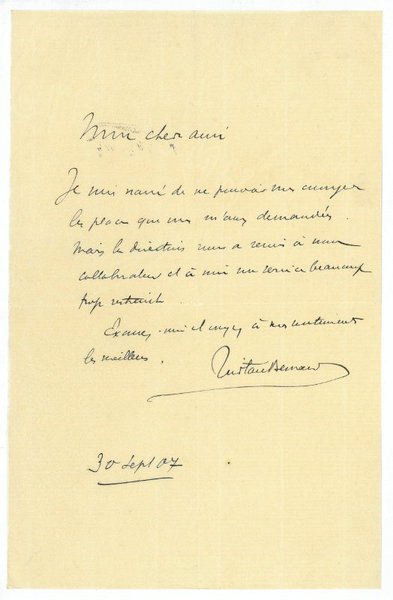 Mon cher ami
Je suis navré de ne pouvoir vous envoyer
les places que vous m'avez demandées.
Mais la direction nous a remis à mon
collaborateur et à moi un service beaucoup
trop restreint.
Excusez-moi et croyez à mes sentiments
les meilleurs.
Tristan Bernard
30 Sept 07